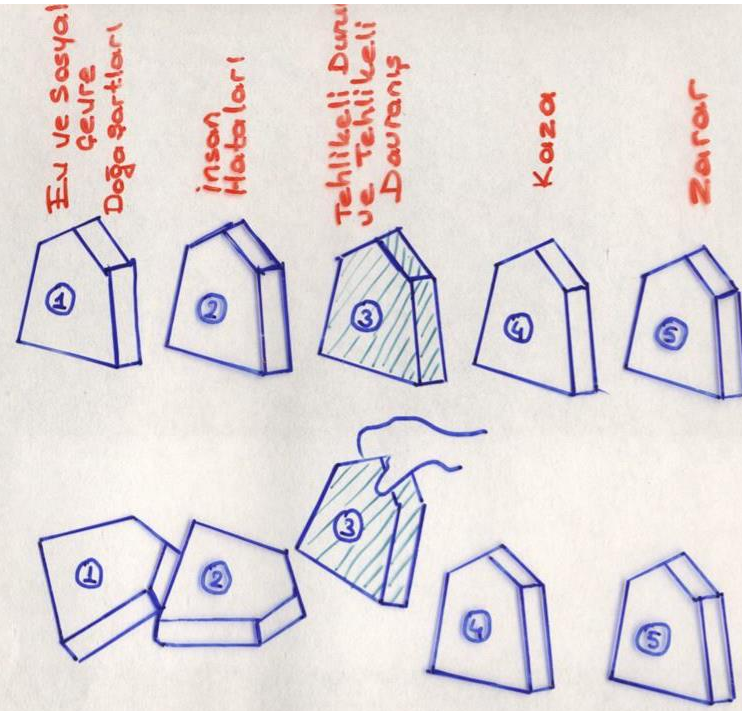 Ev ve Sosyal
Çevre
Doğa Şartları
insan
Hataları
Tehlikeli Duru
ve Tehlikeli
Davranış
Kaza
Zarar
1
2
3
4
5
1
2
3
4
5